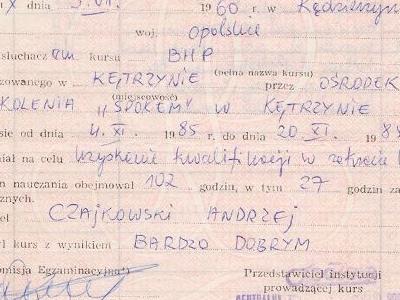 dnia 3. VII. 1960 r. w Kędzierzyn
woj. opolskie
słuchacz em kursu BHP
(pełna nazwa kursu)
zowanego w KĘTRZYNIE przez OŚRODEK
(miejscowość)
KOLENIA "SPOŁEM" W KĘTRZYNIE
sie od dnia 4. XI. 1985 r. do dnia 20 XI. 198
iał na celu uzyskanie kwalifikacji w zakresie
n nauczania obejmował 102 godzin, w tym 27 godzin za
cznych.
el CZAJKOWSKI ANDRZEJ
ył kurs z wynikiem BARDZO DOBRYM
omisja Egzaminacyjna
Przedstawiciel instytucji
prowadzącej kurs